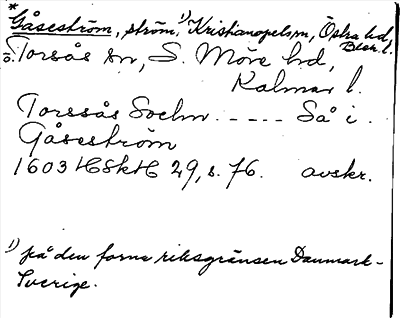 * Gåseström, ström, 1) Kristianopels sn, Östra hd, Blek. l.
o. Torsås sn, S. Möre hd,
Kalmar l.
Torssås Sochn ..... Så i
Gåseström
1603 HSkH 29, s. 76. avskr.
1) på den forna riksgränsen Danmark-
Sverige.